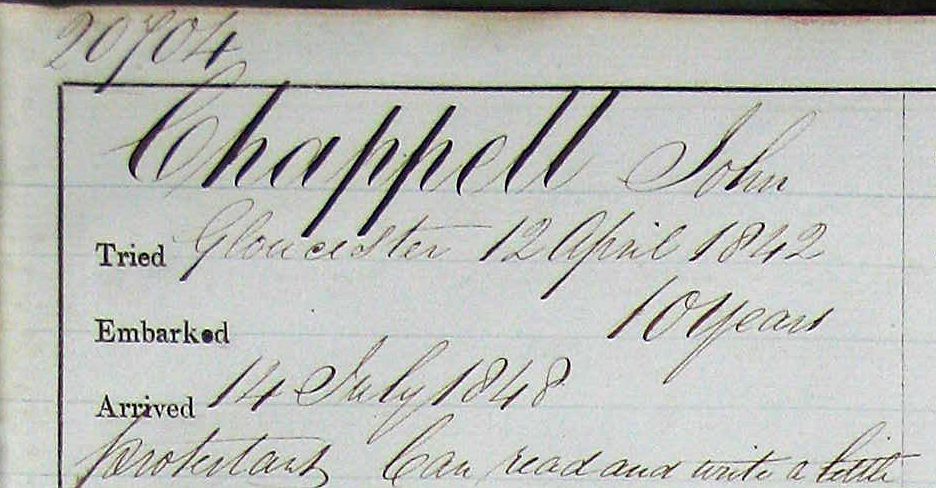 20704
Chappell John
Tried Gloucester 12 April 1842
Embarked 10 years
Arrived 14 July 1848
Protestant Can read and write a little